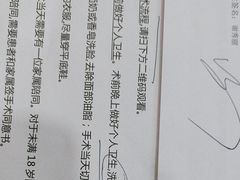 签名：谢秀丽
术流程,请扫下方二维码观看。
前做好个人卫生，术前晚上做好个人卫生,洗
奶或香皂洗脸,去除面部油脂，手术当天切
衣服,尽量穿平底鞋。
当天需要有一位家属陪同，对于未满 18 岁
陪同,需要患者和家属签手术同意书。